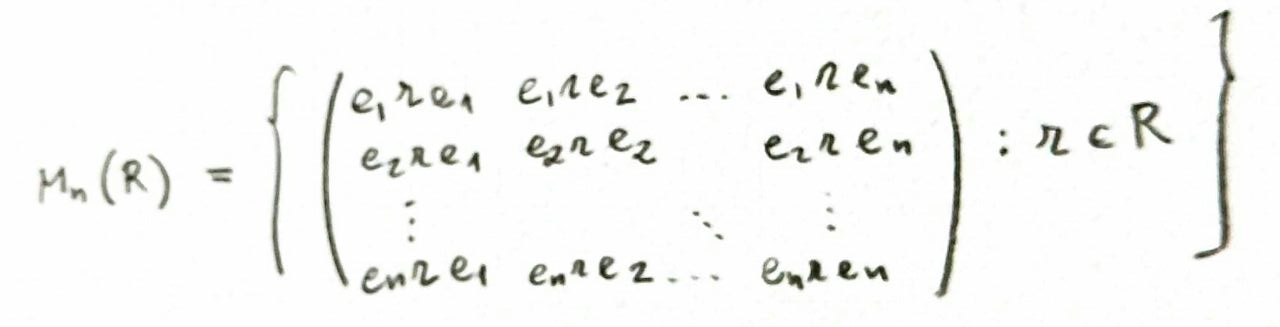 M_n(R) = { ( e_1 r e_1 e_1 r e_2 ... e_1 r e_n
e_2 r e_1 e_2 r e_2 e_2 r e_n
⋮ ⋱ ⋮
e_n r e_1 e_n r e_2 ... e_n r e_n ) : r ∈ R }